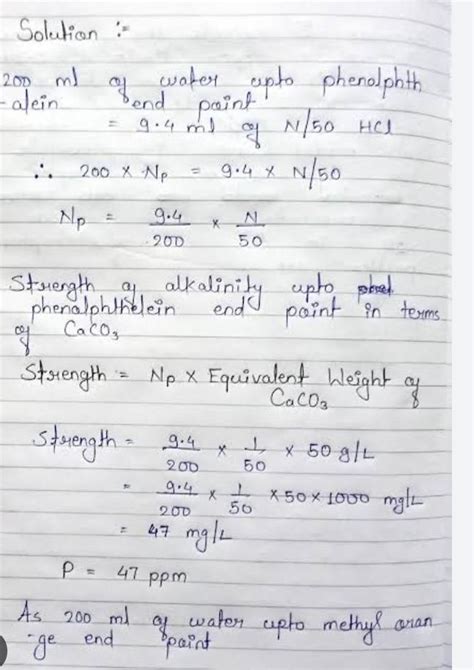 Solution :-
200 ml of water upto phenolphth
-alein end point
= 9.4 ml of N/50 HCl
∴ 200 × Np = 9.4 × N/50
Np = 9.4/200 × N/50
Strength of alkalinity upto
phenolphthelein end point in terms
of CaCO3
Strength = Np × Equivalent Weight of
CaCO3
Strength = 9.4/200 × 1/50 × 50 g/L
= 9.4/200 × 1/50 × 50 × 1000 mg/L
= 47 mg/L
P = 47 ppm
As 200 ml of water upto methyl oran
-ge end point